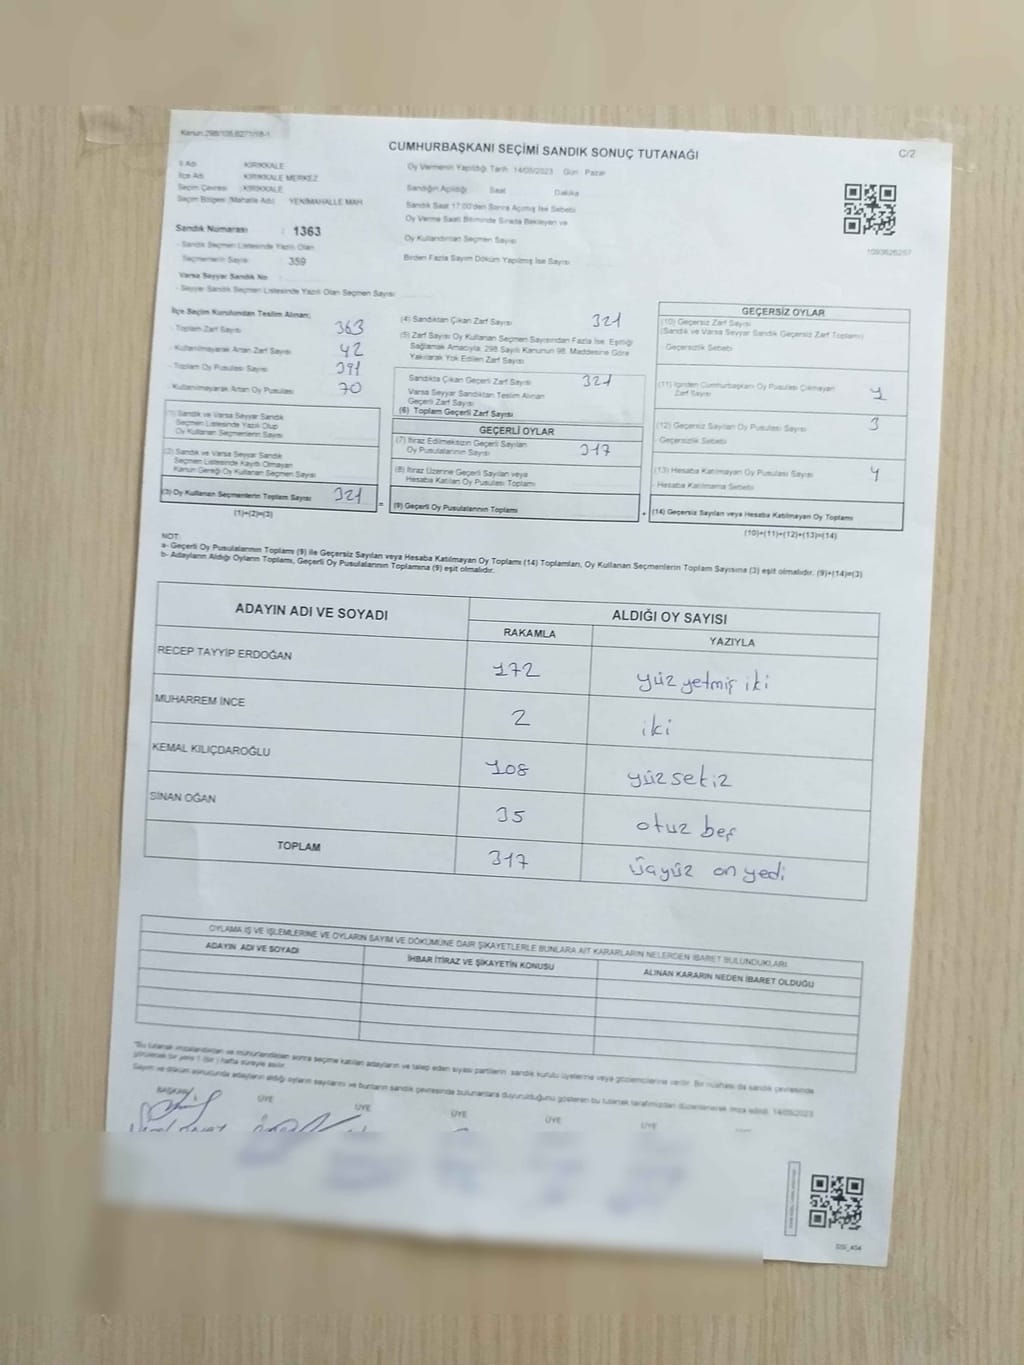 Kanun:298/105,6271/18-1
CUMHURBAŞKANI SEÇİMİ SANDIK SONUÇ TUTANAĞI
C/2
İl Adı KIRIKKALE
İlçe Adı KIRIKKALE MERKEZ
Seçim Çevresi :KIRIKKALE
Seçim Bölgesi (Mahalle Adı) YENİMAHALLE MAH.
Sandık Numarası : 1363
- Sandık Seçmen Listesinde Yazılı Olan
Seçmenlerin Sayısı 359
Varsa Seyyar Sandık No
- Seyyar Sandık Seçmen Listesinde Yazılı Olan Seçmen Sayısı
Oy Vermenin Yapıldığı Tarih 14/05/2023 Gün : Pazar
Sandığın Açıldığı Saat Dakika
Sandık Saat 17.00'den Sonra Açılmış İse Sebebi
Oy Verme Saati Bitiminde Sırada Bekleyen ve
Oy Kullandırılan Seçmen Sayısı
Birden Fazla Sayım Döküm Yapılmış İse Sayısı
1093626257
İlçe Seçim Kurulundan Teslim Alınan;
- Toplam Zarf Sayısı 363
- Kullanılmayarak Artan Zarf Sayısı 42
- Toplam Oy Pusulası Sayısı 391
- Kullanılmayarak Artan Oy Pusulası 70
(1) Sandık ve Varsa Seyyar Sandık
Seçmen Listesinde Yazılı Olup
Oy Kullanan Seçmenlerin Sayısı
(2) Sandık ve Varsa Seyyar Sandık
Seçmen Listesinde Kayıtlı Olmayan
Kanun Gereği Oy Kullanan Seçmen Sayısı
(3) Oy Kullanan Seçmenlerin Toplam Sayısı 321 =
(1)+(2)=(3)
(4) Sandıktan Çıkan Zarf Sayısı 321
(5) Zarf Sayısı Oy Kullanan Seçmen Sayısından Fazla İse, Eşitliği
Sağlamak Amacıyla, 298 Sayılı Kanunun 98. Maddesine Göre
Yakılarak Yok Edilen Zarf Sayısı
Sandıkta Çıkan Geçerli Zarf Sayısı 321
Varsa Seyyar Sandıktan Teslim Alınan
Geçerli Zarf Sayısı
(6) Toplam Geçerli Zarf Sayısı
GEÇERLİ OYLAR
(7) İtiraz Edilmeksizin Geçerli Sayılan
Oy Pusulalarının Sayısı 317
(8) İtiraz Üzerine Geçerli Sayılan veya
Hesaba Katılan Oy Pusulası Toplamı
(9) Geçerli Oy Pusulalarının Toplamı +
GEÇERSİZ OYLAR
(10) Geçersiz Zarf Sayısı
(Sandık ve Varsa Seyyar Sandık Geçersiz Zarf Toplamı)
- Geçersizlik Sebebi
(11) İçinden Cumhurbaşkanı Oy Pusulası Çıkmayan
Zarf Sayısı 1
(12) Geçersiz Sayılan Oy Pusulası Sayısı 3
- Geçersizlik Sebebi
(13) Hesaba Katılmayan Oy Pusulası Sayısı 4
- Hesaba Katılmama Sebebi
(14) Geçersiz Sayılan veya Hesaba Katılmayan Oy Toplamı
(10)+(11)+(12)+(13)=(14)
NOT:
a- Geçerli Oy Pusulalarının Toplamı (9) ile Geçersiz Sayılan veya Hesaba Katılmayan Oy Toplamı (14) Toplamları, Oy Kullanan Seçmenlerin Toplam Sayısına (3) eşit olmalıdır. (9)+(14)=(3)
b- Adayların Aldığı Oyların Toplamı, Geçerli Oy Pusulalarının Toplamına (9) eşit olmalıdır.
ADAYIN ADI VE SOYADI
ALDIĞI OY SAYISI
RAKAMLA YAZIYLA
RECEP TAYYİP ERDOĞAN 172 yüz yetmiş iki
MUHARREM İNCE 2 iki
KEMAL KILIÇDAROĞLU 108 yüz sekiz
SİNAN OĞAN 35 otuz beş
TOPLAM 317 üçyüz on yedi
OYLAMA İŞ VE İŞLEMLERİNE VE OYLARIN SAYIM VE DÖKÜMÜNE DAİR ŞİKAYETLERLE BUNLARA AİT KARARLARIN NELERDEN İBARET BULUNDUKLARI
ADAYIN ADI VE SOYADI
İHBAR İTİRAZ VE ŞİKAYETİN KONUSU
ALINAN KARARIN NEDEN İBARET OLDUĞU
"Bu tutanak imzalandıktan ve mühürlendikten sonra seçime katılan adayların ve talep eden siyasi partilerin sandık kurulu üyelerine veya gözlemcilerine verilir. Bir nüshası da sandık çevresinde
görülecek bir yere 1 (bir) hafta süreyle asılır.
Sayım ve döküm sonucunda adayların aldığı oyların sayılarını ve bunların sandık çevresinde bulunanlara duyurulduğunu gösteren bu tutanak tarafımızdan düzenlenerek imza edildi. 14/05/2023
BAŞKAN ÜYE ÜYE ÜYE ÜYE ÜYE